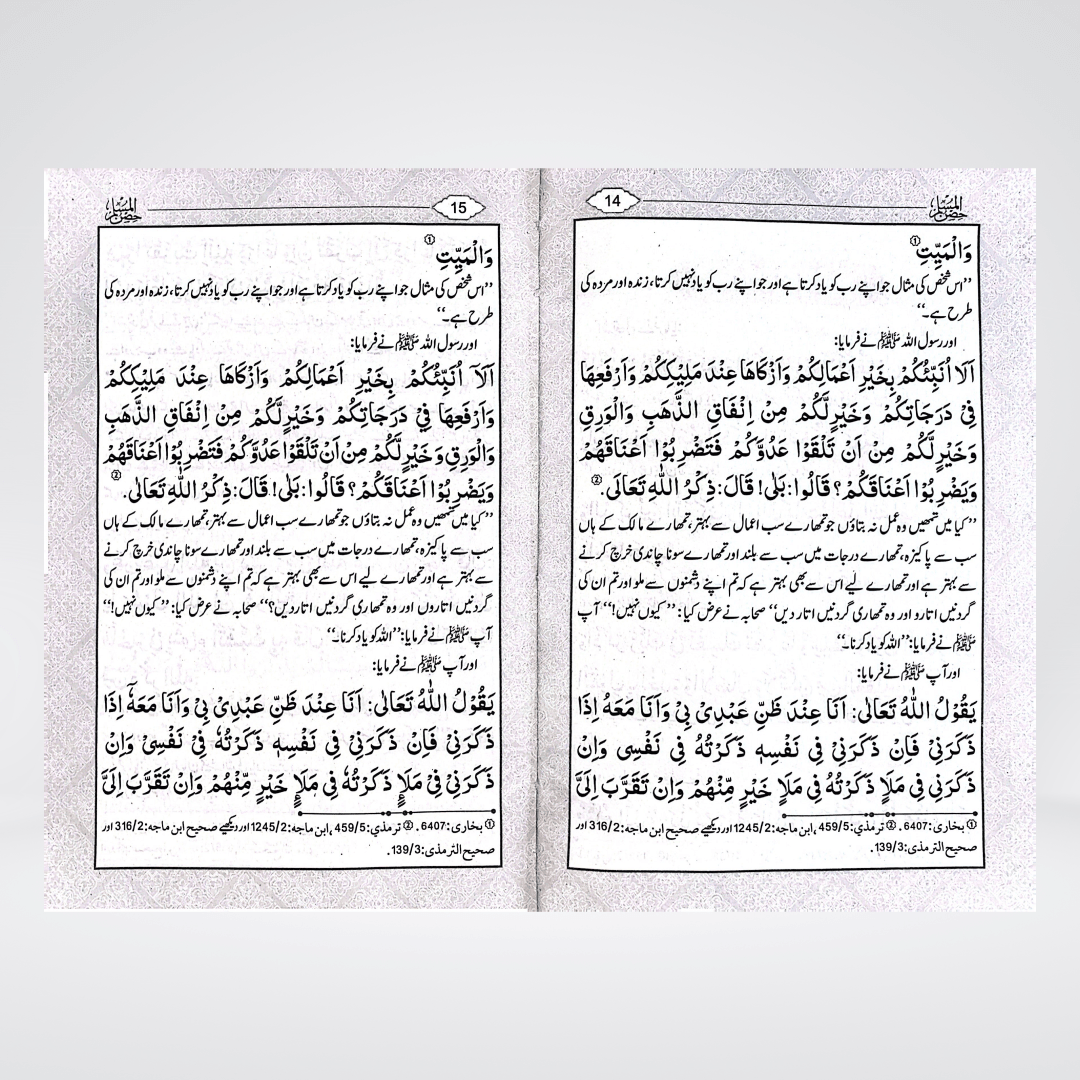 14
حصن المسلم
وَالْمَيِّتِ ①
’’اس شخص کی مثال جو اپنے رب کو یاد کرتا ہے اور جو اپنے رب کو یاد نہیں کرتا، زندہ اور مردہ کی
طرح ہے۔‘‘
اور رسول اللہ ﷺ نے فرمایا:
اَلَا اُنَبِّئُكُمْ بِخَيْرِ اَعْمَالِكُمْ وَاَزْكَاهَا عِنْدَ مَلِيْكِكُمْ وَاَرْفَعِهَا
فِيْ دَرَجَاتِكُمْ وَخَيْرٍ لَّكُمْ مِنْ اِنْفَاقِ الذَّهَبِ وَالْوَرِقِ
وَخَيْرٍ لَّكُمْ مِنْ اَنْ تَلْقَوْا عَدُوَّكُمْ فَتَضْرِبُوْا اَعْنَاقَهُمْ
وَيَضْرِبُوْا اَعْنَاقَكُمْ؟ قَالُوا: بَلٰى! قَالَ: ذِكْرُ اللّٰهِ تَعَالَى. ②
’’کیا میں تمھیں وہ عمل نہ بتاؤں جو تمھارے سب اعمال سے بہتر، تمھارے مالک کے ہاں
سب سے پاکیزہ، تمھارے درجات میں سب سے بلند اور تمھارے سونا چاندی خرچ کرنے
سے بہتر ہے اور تمھارے لیے اس سے بھی بہتر ہے کہ تم اپنے دشمنوں سے ملو اور تم ان کی
گردنیں اتارو اور وہ تمھاری گردنیں اتار دیں‘‘ صحابہ نے عرض کیا: ’’کیوں نہیں!‘‘ آپ
ﷺ نے فرمایا: ’’اللہ کو یاد کرنا۔‘‘
اور آپ ﷺ نے فرمایا:
يَقُوْلُ اللّٰهُ تَعَالٰى: اَنَا عِنْدَ ظَنِّ عَبْدِيْ بِيْ وَاَنَا مَعَهٗ اِذَا
ذَكَرَنِيْ فَاِنْ ذَكَرَنِيْ فِي نَفْسِهٖ ذَكَرْتُهُ فِي نَفْسِي وَاِنْ
ذَكَرَنِي فِي مَلَاٍ ذَكَرْتُهُ فِي مَلَاٍ خَيْرٍ مِّنْهُمْ وَاِنْ تَقَرَّبَ اِلَيَّ
① بخاری: 6407. ② ترمذي: 459/5، ابن ماجه: 1245/2 اور دیکھیے صحیح ابن ماجه: 316/2 اور
صحیح الترمذی: 139/3.
15
حصن المسلم
وَالْمَيِّتِ ①
’’اس شخص کی مثال جو اپنے رب کو یاد کرتا ہے اور جو اپنے رب کو یاد نہیں کرتا، زندہ اور مردہ کی
طرح ہے۔‘‘
اور رسول اللہ ﷺ نے فرمایا:
اَلَآ اُنَبِّئُكُمْ بِخَيْرِ اَعْمَالِكُمْ وَاَزْكَاهَا عِنْدَ مَلِيْكِكُمْ
وَاَرْفَعِهَا فِيْ دَرَجَاتِكُمْ وَخَيْرٍ لَّكُمْ مِنْ اِنْفَاقِ الذَّهَبِ
وَالْوَرِقِ وَخَيْرٍ لَّكُمْ مِنْ اَنْ تَلْقَوْا عَدُوَّكُمْ فَتَضْرِبُوْا اَعْنَاقَهُمْ
وَيَضْرِبُوْا اَعْنَاقَكُمْ؟ قَالُوا: بَلٰى! قَالَ: ذِكْرُ اللّٰهِ تَعَالٰى. ②
’’کیا میں تمھیں وہ عمل نہ بتاؤں جو تمھارے سب اعمال سے بہتر، تمھارے مالک کے ہاں
سب سے پاکیزہ، تمھارے درجات میں سب سے بلند اور تمھارے سونا چاندی خرچ کرنے
سے بہتر ہے اور تمھارے لیے اس سے بھی بہتر ہے کہ تم اپنے دشمنوں سے ملو اور تم ان کی
گردنیں اتاروں اور وہ تمھاری گردنیں اتار دیں؟‘‘ صحابہ نے عرض کیا: ’’کیوں نہیں!‘‘
آپ ﷺ نے فرمایا: ’’اللہ کو یاد کرنا۔‘‘
اور آپ ﷺ نے فرمایا:
يَقُوْلُ اللّٰهُ تَعَالٰى: اَنَا عِنْدَ ظَنِّ عَبْدِيْ بِيْ وَاَنَا مَعَهٗ اِذَا
ذَكَرَنِيْ فَاِنْ ذَكَرَنِيْ فِي نَفْسِهٖ ذَكَرْتُهٗ فِيْ نَفْسِيْ وَاِنْ
ذَكَرَنِيْ فِيْ مَلَاٍ ذَكَرْتُهٗ فِي مَلَاٍ خَيْرٍ مِّنْهُمْ وَاِنْ تَقَرَّبَ اِلَيَّ
① بخاری: 6407. ② ترمذي: 459/5، ابن ماجه: 1245/2 اور دیکھیے صحیح ابن ماجه: 316/2 اور
صحیح الترمذی: 139/3.